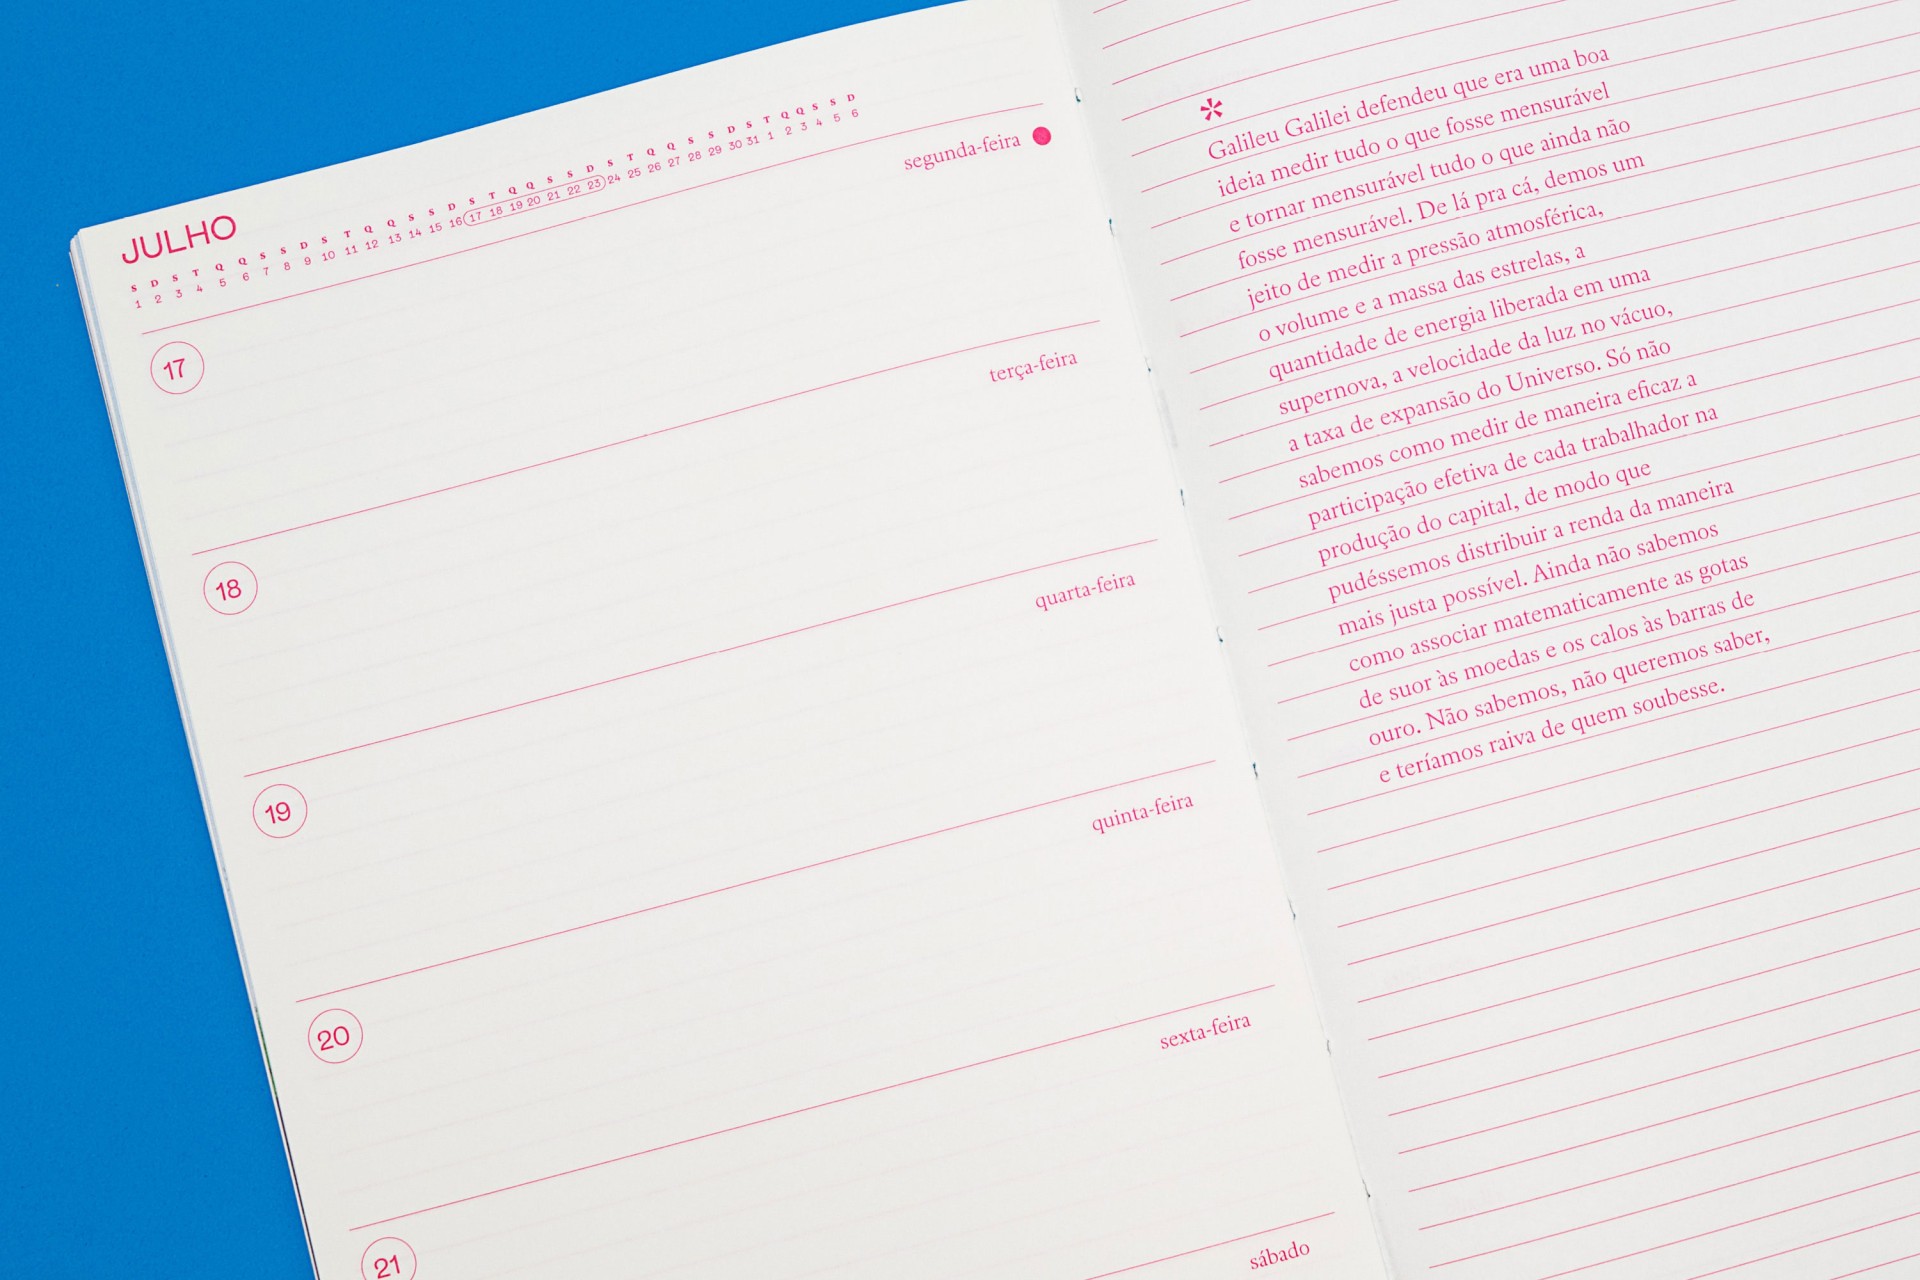 JULHO
S D S T Q Q S S D S T Q Q S S D S T Q Q S S D S T Q Q S S D S T Q Q S S D
1 2 3 4 5 6 7 8 9 10 11 12 13 14 15 16 17 18 19 20 21 22 23 24 25 26 27 28 29 30 31 1 2 3 4 5 6
segunda-feira
17
terça-feira
18
quarta-feira
19
quinta-feira
20
sexta-feira
21
sábado
*
Galileu Galilei defendeu que era uma boa
ideia medir tudo o que fosse mensurável
e tornar mensurável tudo o que ainda não
fosse mensurável. De lá pra cá, demos um
jeito de medir a pressão atmosférica,
o volume e a massa das estrelas, a
quantidade de energia liberada em uma
supernova, a velocidade da luz no vácuo,
a taxa de expansão do Universo. Só não
sabemos como medir de maneira eficaz a
participação efetiva de cada trabalhador na
produção do capital, de modo que
pudéssemos distribuir a renda da maneira
mais justa possível. Ainda não sabemos
como associar matematicamente as gotas
de suor às moedas e os calos às barras de
ouro. Não sabemos, não queremos saber,
e teríamos raiva de quem soubesse.